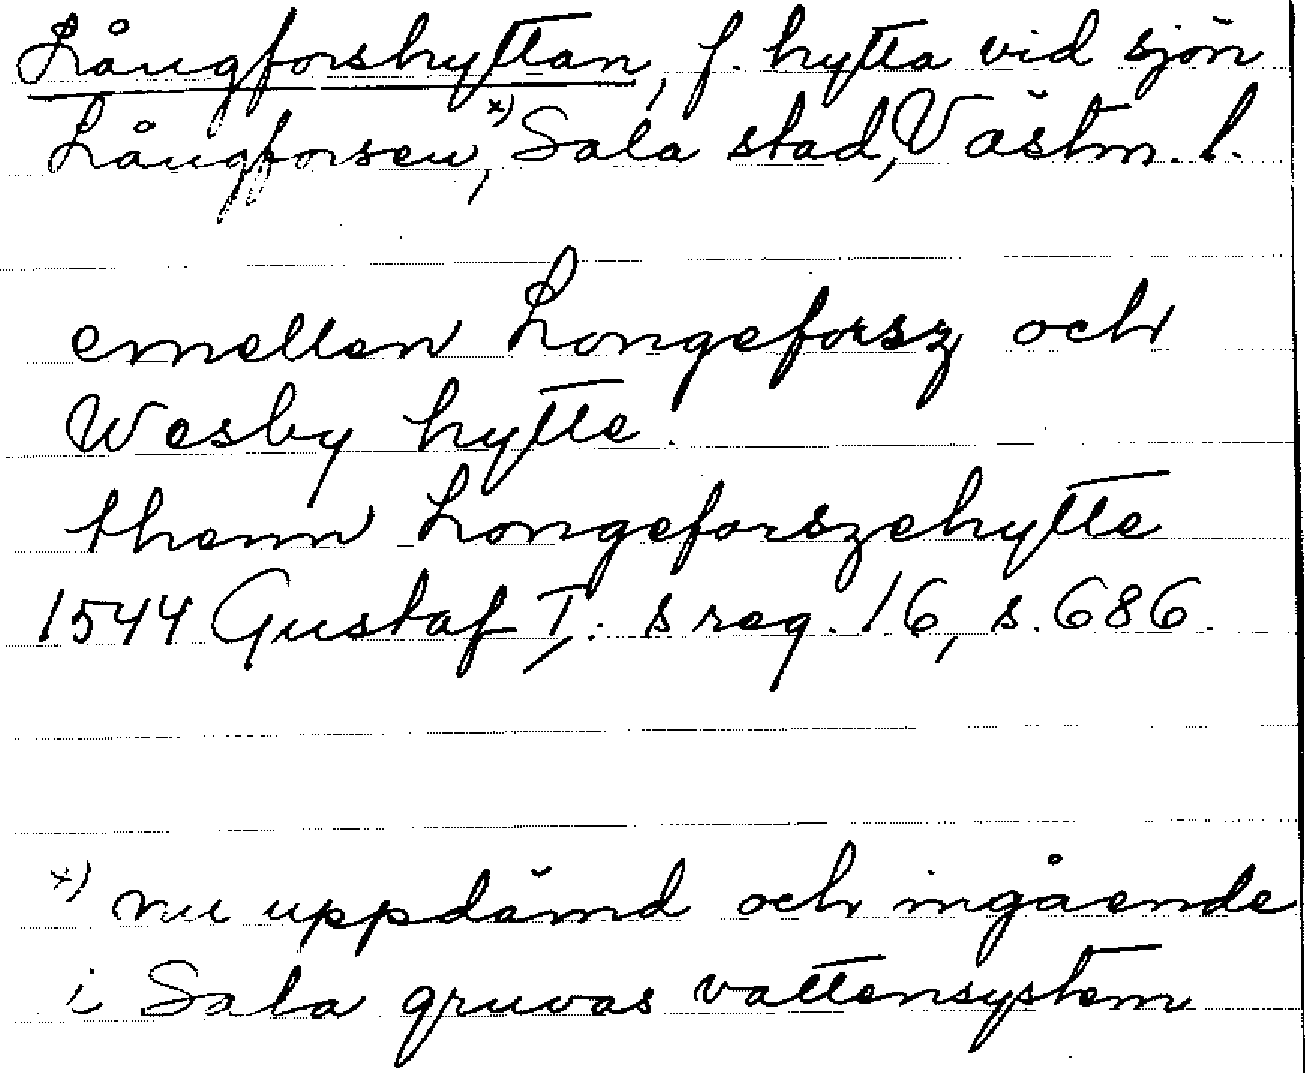 Långforshyttan, f. hytta vid sjön
Långforsen,x) Sala stad, Västm. l.
emellen Longeforsz och
Wesby hytte.
thenn Longeforszehytte
1544 Gustaf I: s reg. 16, s. 686.
x) nu uppdämd och ingående
i Sala gruvas vattensystem